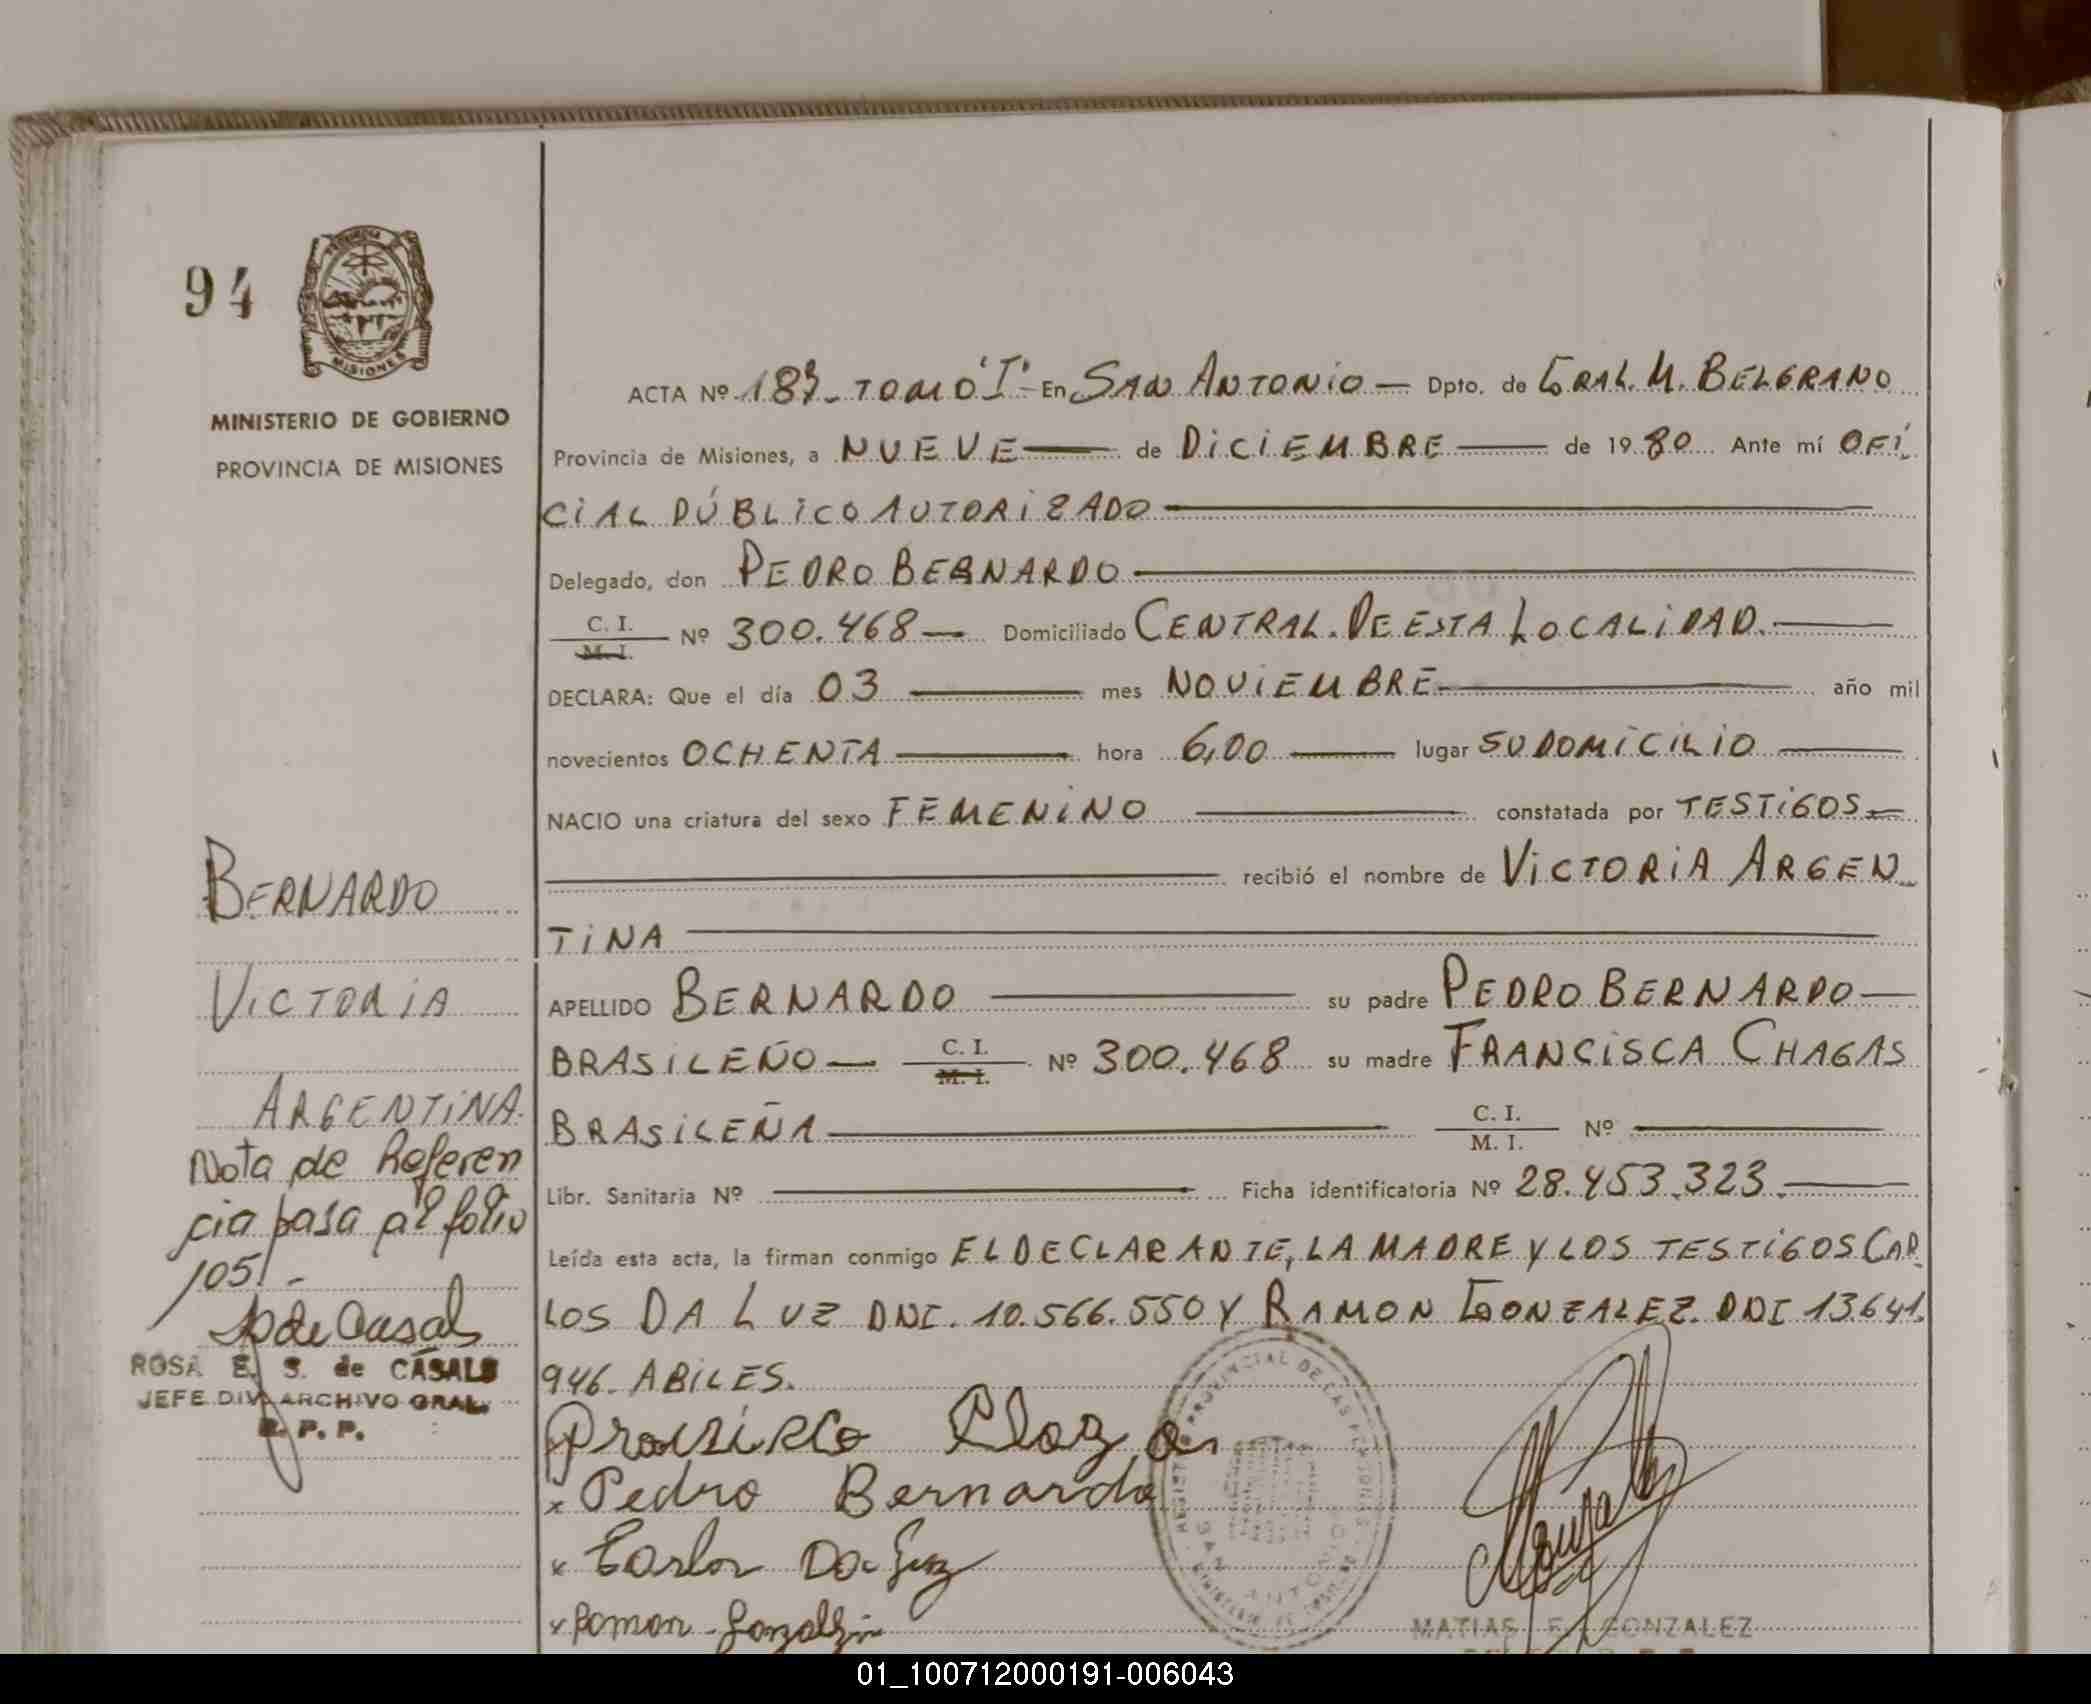 94
MISIONES
MINISTERIO DE GOBIERNO
PROVINCIA DE MISIONES
ACTA Nº 187- TOMO "I"- En SAN ANTONIO — Dpto. de GRAL. M. BELGRANO
Provincia de Misiones, a NUEVE — de DICIEMBRE — de 1980 Ante mí OFI
CIAL PÚBLICO AUTORIZADO —
Delegado, don PEDRO BERNARDO —
C. I.
M. I. Nº 300.468 — Domiciliado CENTRAL. DE ESTA LOCALIDAD. —
DECLARA: Que el día 03 — mes NOVIEMBRE — año mil
novecientos OCHENTA — hora 6,00 — lugar SU DOMICILIO —
NACIO una criatura del sexo FEMENINO — constatada por TESTIGOS —
— recibió el nombre de VICTORIA ARGEN
TINA —
APELLIDO BERNARDO — su padre PEDRO BERNARDO —
BRASILEÑO — C. I. M. I. Nº 300.468 su madre FRANCISCA CHAGAS
BRASILEÑA — C. I. M. I. Nº —
Libr. Sanitaria Nº — Ficha identificatoria Nº 28.453.323. —
Leída esta acta, la firman conmigo EL DECLARANTE, LA MADRE Y LOS TESTIGOS CAR
LOS DA LUZ DNI. 10.566.550 Y RAMON GONZALEZ. DNI 13.641.
946. ABILES.
BERNARDO
VICTORIA
ARGENTINA.
Nota de Referen
cia pasa al folio
105.-
ROSA E. S. de CASALS
JEFE DIV. ARCHIVO GRAL.
R. P. P.
x Pedro Bernardo
x Carlos Da Luz
x Ramon Gonzalez
REGISTRO PROVINCIAL DE LAS PERSONAS
SAN ANTONIO
MATIAS F. GONZALEZ
01_100712000191-006043